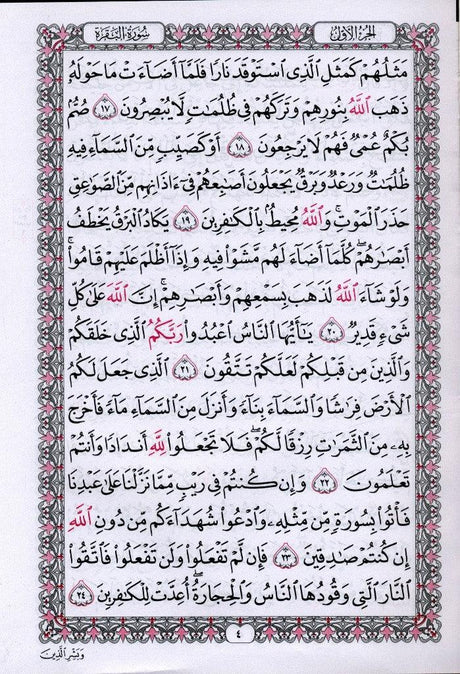 الجزء الأول
سورة البقرة
مَثَلُهُمْ كَمَثَلِ ٱلَّذِى ٱسْتَوْقَدَ نَارًا فَلَمَّآ أَضَآءَتْ مَا حَوْلَهُۥ
ذَهَبَ ٱللَّهُ بِنُورِهِمْ وَتَرَكَهُمْ فِى ظُلُمَٰتٍ لَّا يُبْصِرُونَ ١٧ صُمٌّۢ
بُكْمٌ عُمْىٌ فَهُمْ لَا يَرْجِعُونَ ١٨ أَوْ كَصَيِّبٍ مِّنَ ٱلسَّمَآءِ فِيهِ
ظُلُمَٰتٌ وَرَعْدٌ وَبَرْقٌ يَجْعَلُونَ أَصَٰبِعَهُمْ فِىٓ ءَاذَانِهِم مِّنَ ٱلصَّوَٰعِقِ
حَذَرَ ٱلْمَوْتِ ۚ وَٱللَّهُ مُحِيطٌۢ بِٱلْكَٰفِرِينَ ١٩ يَكَادُ ٱلْبَرْقُ يَخْطَفُ
أَبْصَٰرَهُمْ ۖ كُلَّمَآ أَضَآءَ لَهُم مَّشَوْا۟ فِيهِ وَإِذَآ أَظْلَمَ عَلَيْهِمْ قَامُوا۟ ۚ
وَلَوْ شَآءَ ٱللَّهُ لَذَهَبَ بِسَمْعِهِمْ وَأَبْصَٰرِهِمْ ۚ إِنَّ ٱللَّهَ عَلَىٰ كُلِّ
شَىْءٍ قَدِيرٌ ٢٠ يَٰٓأَيُّهَا ٱلنَّاسُ ٱعْبُدُوا۟ رَبَّكُمُ ٱلَّذِى خَلَقَكُمْ
وَٱلَّذِينَ مِن قَبْلِكُمْ لَعَلَّكُمْ تَتَّقُونَ ٢١ ٱلَّذِى جَعَلَ لَكُمُ
ٱلْأَرْضَ فِرَٰشًا وَٱلسَّمَآءَ بِنَآءً وَأَنزَلَ مِنَ ٱلسَّمَآءِ مَآءً فَأَخْرَجَ
بِهِۦ مِنَ ٱلثَّمَرَٰتِ رِزْقًا لَّكُمْ ۖ فَلَا تَجْعَلُوا۟ لِلَّهِ أَندَادًا وَأَنتُمْ
تَعْلَمُونَ ٢٢ وَإِن كُنتُمْ فِى رَيْبٍ مِّمَّا نَزَّلْنَا عَلَىٰ عَبْدِنَا
فَأْتُوا۟ بِسُورَةٍ مِّن مِّثْلِهِۦ وَٱدْعُوا۟ شُهَدَآءَكُم مِّن دُونِ ٱللَّهِ
إِن كُنتُمْ صَٰدِقِينَ ٢٣ فَإِن لَّمْ تَفْعَلُوا۟ وَلَن تَفْعَلُوا۟ فَٱتَّقُوا۟
ٱلنَّارَ ٱلَّتِى وَقُودُهَا ٱلنَّاسُ وَٱلْحِجَارَةُ ۖ أُعِدَّتْ لِلْكَٰفِرِينَ ٢٤
٤
وبشر الذين